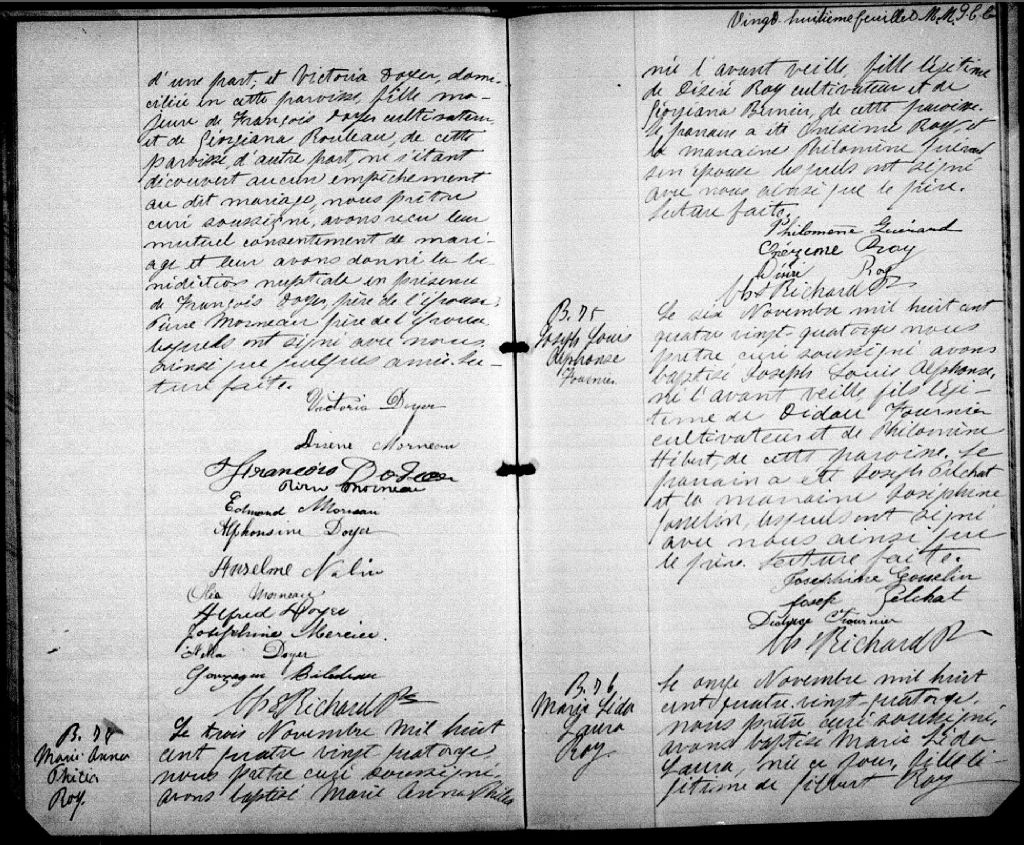 d'une part, et Victoria Doyer, domi-
ciliée en cette paroisse, fille ma-
jeure de François Doyer cultivateur
et de Géorgiana Rouleau, de cette
paroisse d'autre part, ne s'étant
découvert aucun empêchement
au dit mariage, nous prêtre
curé soussigné, avons reçu leur
mutuel consentement de mari-
age et leur avons donné la bé-
nédiction nuptiale en présence
de François Doyer, père de l'épouse
Pierre Morneau, père de l'époux
lesquels ont signé avec nous,
ainsi que quelques amis. Lec-
ture faite.
Victoria Doyer
Morneau
François
Pierre Morneau
Edmond Morneau
Alphonsine Doyer
Anselme Nolin
Morneau
Alfred Doyer
Joséphine Mercier.
Doyer
Gonzague Bilodeau
Chs Richard Ptr
B. 74
Marie Anna
Roy.
Le trois Novembre mil huit
cent quatre vingt quatorze,
nous prêtre curé soussigné,
avons baptisé Marie Anna
Vingt huitième feuillet
née l'avant veille, fille légitime
de Désiré Roy cultivateur et de
Géorgiana Bernier, de cette paroisse.
Le parrain a été Onésime Roy, et
la marraine Philomène Guérard
son épouse lesquels ont signé
avec nous ainsi que le père.
Lecture faite.
Philomène Guérard
Onézime Roy
Désiré Roy
Chs Richard Ptr
B. 75
Joseph Louis
Alphonse
Fournier
Le six Novembre mil huit cent
quatre vingt-quatorze nous
prêtre curé soussigné avons
baptisé Joseph Louis Alphonse,
né l'avant veille, fils légi-
time de Fournier
cultivateur et de Philomène
Hébert, de cette paroisse. Le
parrain a été Joseph Pelchat
et la marraine Joséphine
Gosselin, lesquels ont signé
avec nous ainsi que
le père. Lecture faite.
Josephine Gosselin
Josep Pelchat
Fournier
Chs Richard Ptr
B. 76
Marie Lida
Laura
Roy.
Le onze Novembre mil huit
cent quatre-vingt-quatorze,
nous prêtre curé soussigné,
avons baptisé Marie Lida
Laura, née ce jour, fille lé-
gitime de Gilbert Roy